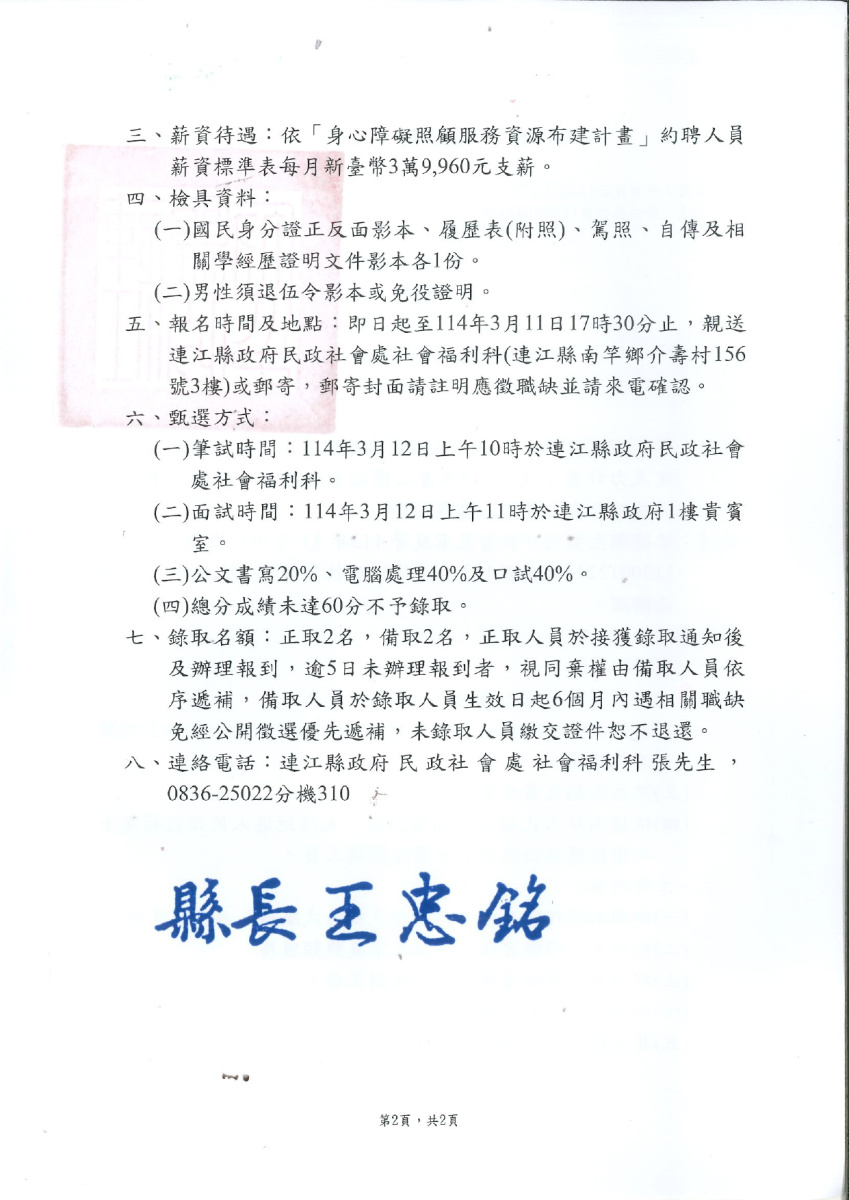 三、薪資待遇：依「身心障礙照顧服務資源布建計畫」約聘人員
薪資標準表每月新臺幣3萬9,960元支薪。
四、檢具資料：
(一)國民身分證正反面影本、履歷表(附照)、駕照、自傳及相
關學經歷證明文件影本各1份。
(二)男性須退伍令影本或免役證明。
五、報名時間及地點：即日起至114年3月11日17時30分止，親送
連江縣政府民政社會處社會福利科(連江縣南竿鄉介壽村156
號3樓)或郵寄，郵寄封面請註明應徵職缺並請來電確認。
六、甄選方式：
(一)筆試時間：114年3月12日上午10時於連江縣政府民政社會
處社會福利科。
(二)面試時間：114年3月12日上午11時於連江縣政府1樓貴賓
室。
(三)公文書寫20%、電腦處理40%及口試40%。
(四)總分成績未達60分不予錄取。
七、錄取名額：正取2名，備取2名，正取人員於接獲錄取通知後
及辦理報到，逾5日未辦理報到者，視同棄權由備取人員依
序遞補，備取人員於錄取人員生效日起6個月內遇相關職缺
免經公開徵選優先遞補，未錄取人員繳交證件恕不退還。
八、連絡電話：連江縣政府民政社會處社會福利科張先生，
0836-25022分機310
縣長王忠銘
第2頁，共2頁